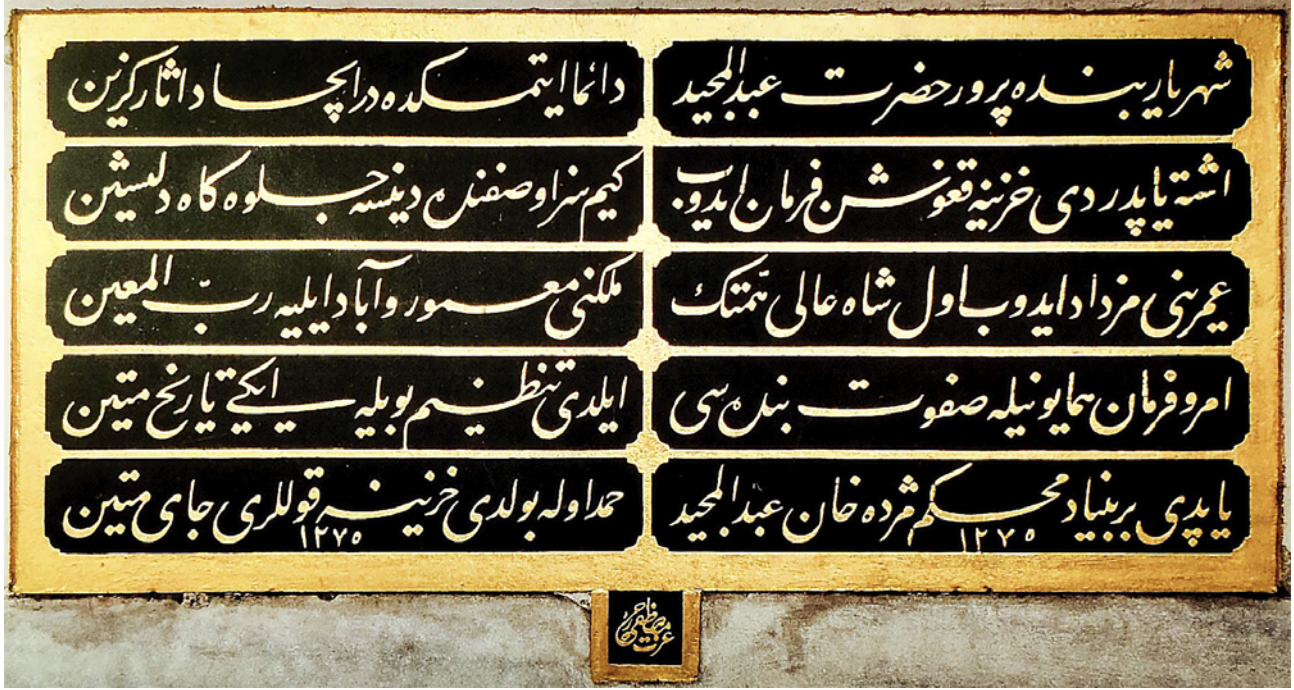 شهریار بنده پرور حضرت عبدالمجید
دائما ایتمكده در ایجاد اثار كزین
اشته یاپدردی خزینه قغوشن فرمان ایدوب
كیم سزا وصفنده دینسه جلوه كاه دلنشین
عمرینی مزداد ایدوب اول شاه عالی همّتك
ملكنی معمور و آباد ایلیه ربّ المعین
امر و فرمان همایونیله صفوت بنده سی
ایلدی تنظیم بویله ایكی تاریخ متین
یاپدی بر بنیاد محكم مژده خان عبدالمجید
١٢٧٥
حمد اوله بولدی خزینه قوللری جای متین
١٢٧٥